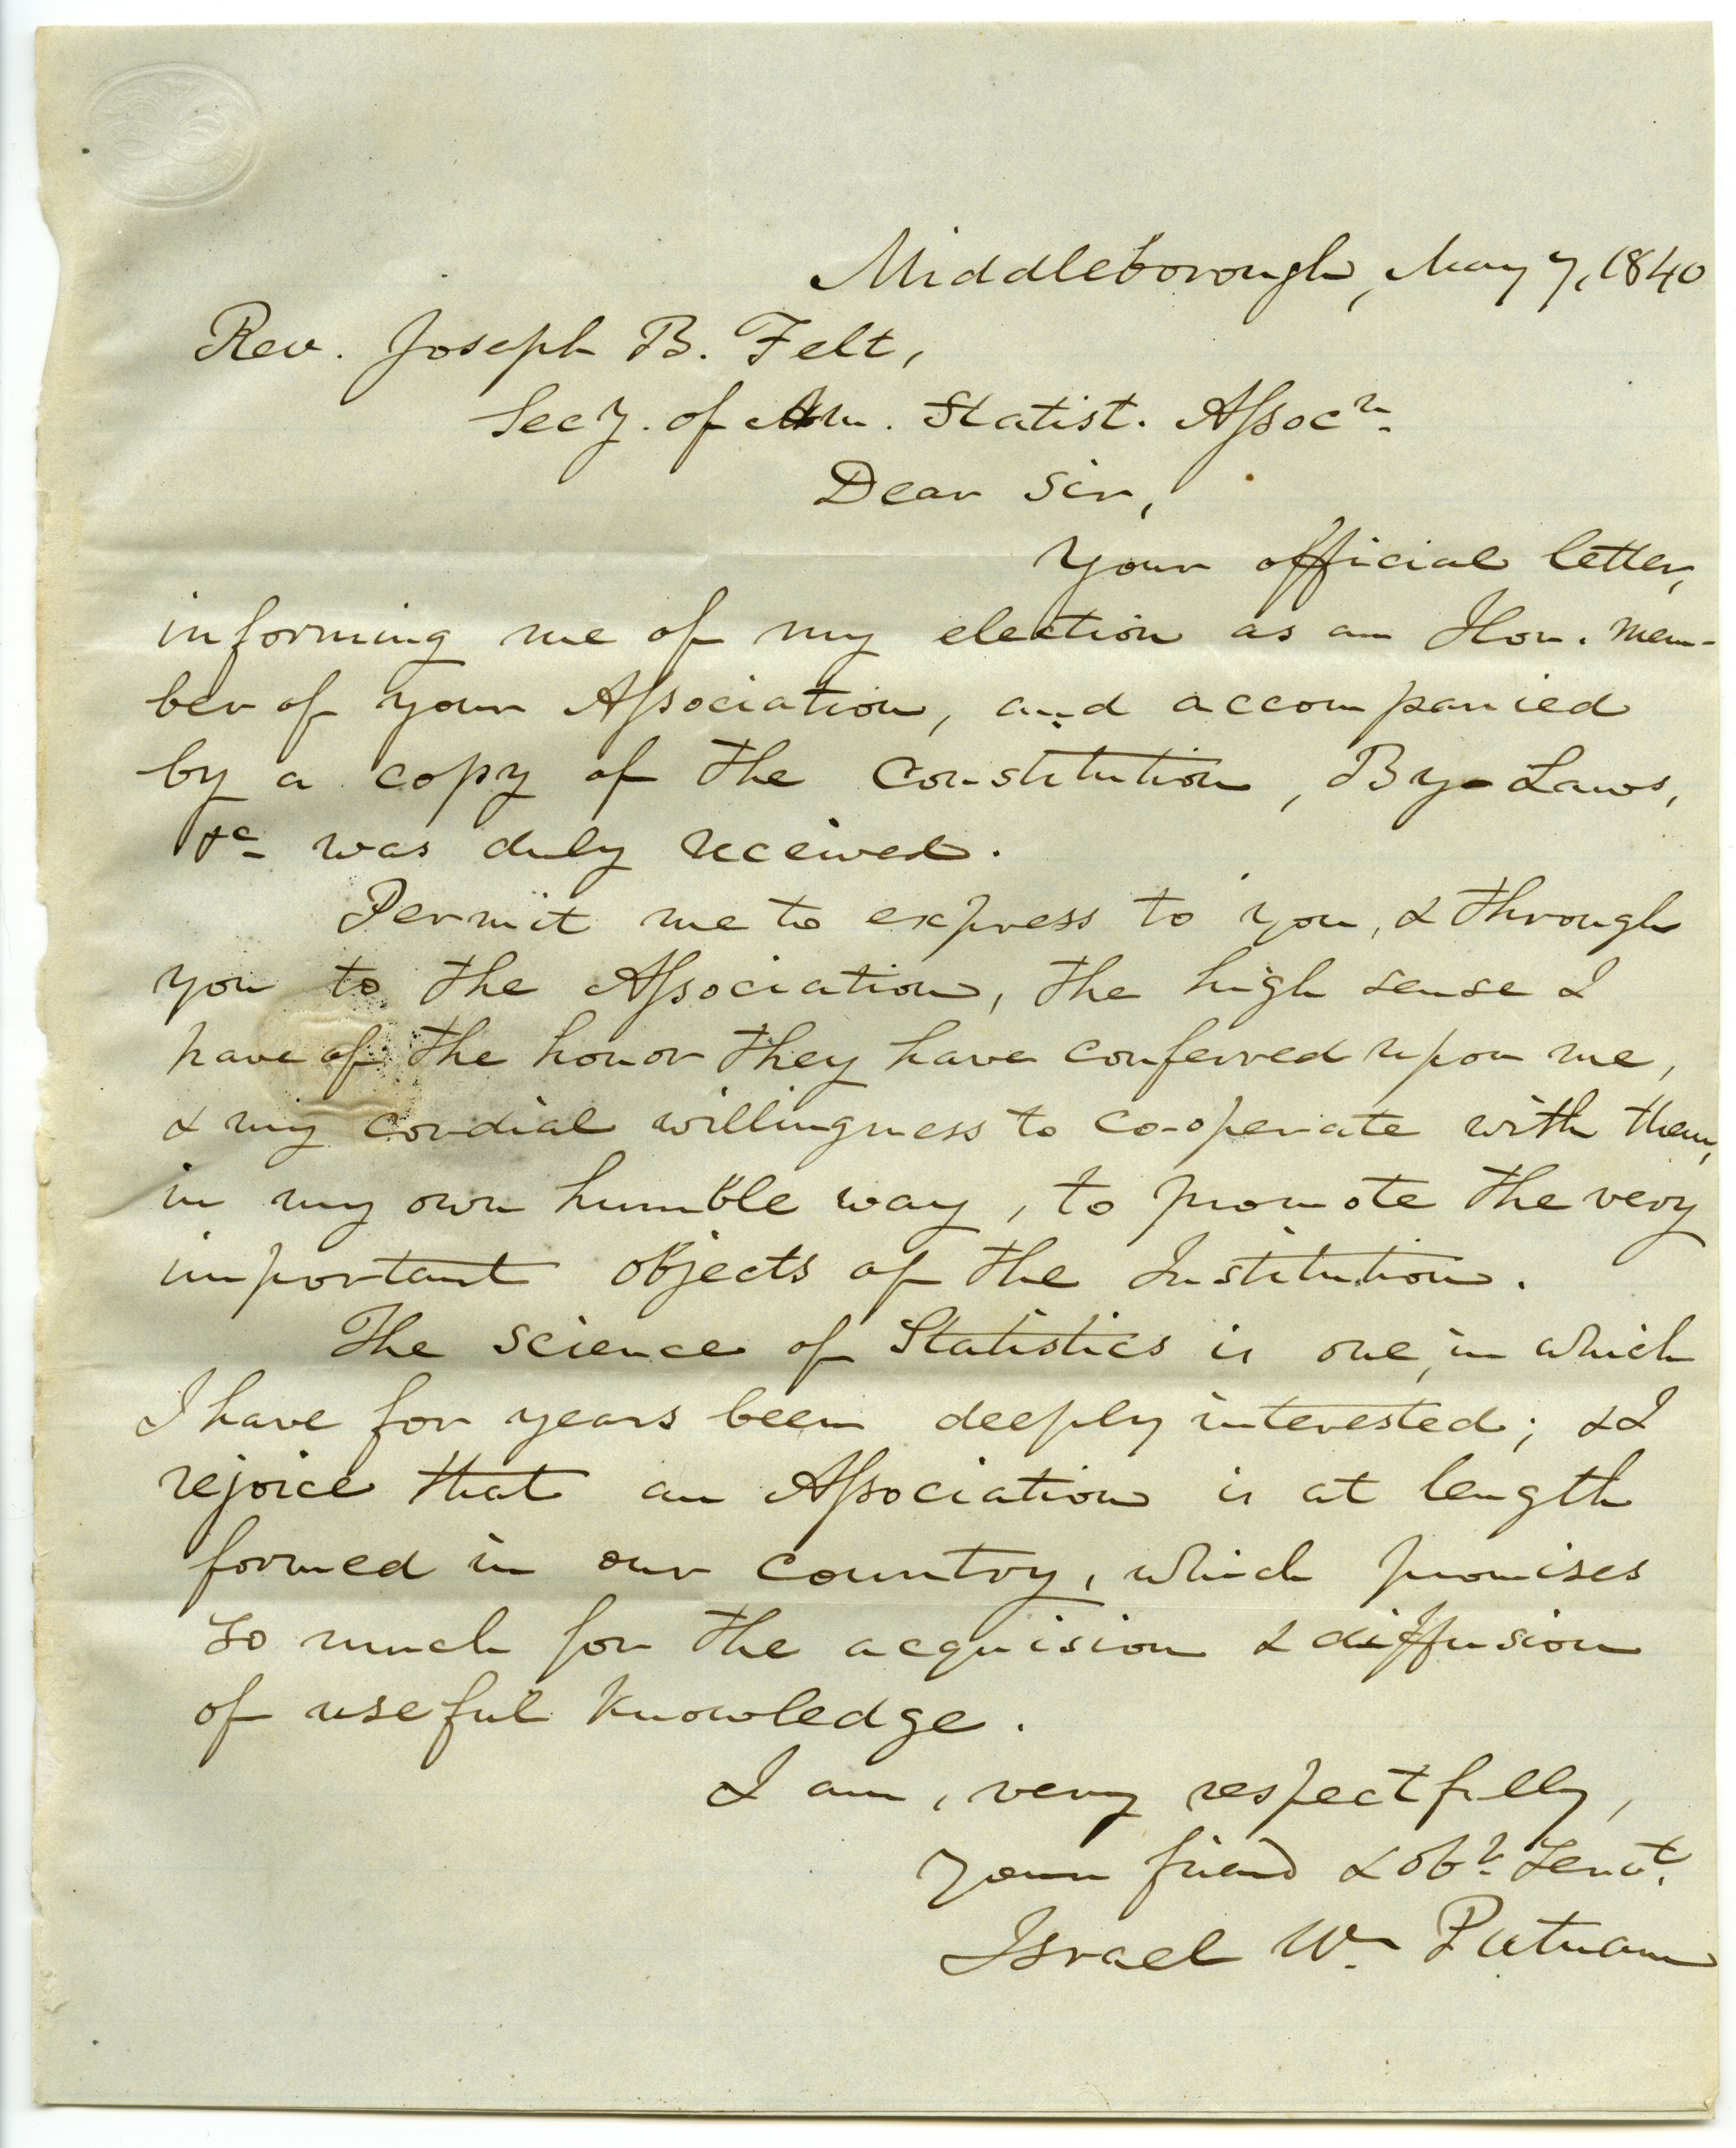 Middleborough, May 7, 1840
Rev. Joseph B. Felt,
Secy. of Am. Statist. Assocn.
Dear Sir,
Your official letter,
informing me of my election as an Hon. mem-
ber of your Association, and accompanied
by a copy of the Constitution, By-Laws,
&c was duly received.
Permit me to express to you, & through
you to the Association, the high sense I
have of the honor they have conferred upon me,
& my cordial willingness to co-operate with them,
in my own humble way, to promote the very
important objects of the Institution.
The science of Statistics is one, in which
I have for years been deeply interested; & I
rejoice that an Association is at length
formed in our country, which promises
so much for the acquision & diffusion
of useful knowledge.
I am, very respectfully,
Your friend & obt. Servt.
Israel Wm. Putnam